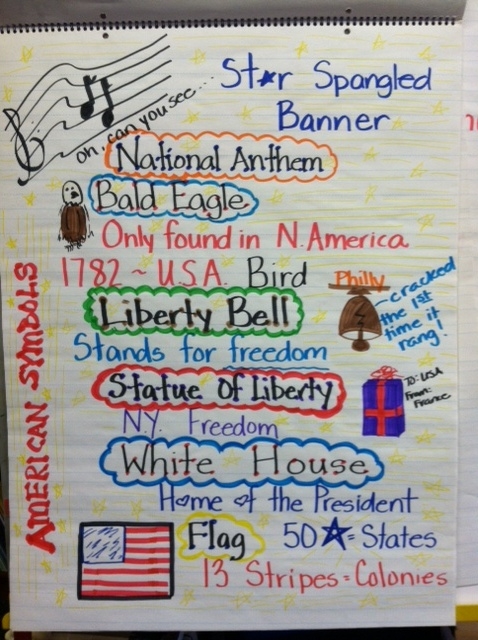 St★r Spangled
Banner
oh, can you see...
National Anthem
Bald Eagle
Only found in N. America
1782 ~ U.S.A. Bird
Philly
Liberty Bell
cracked
the 1st
time it
rang!
Stands for freedom
Statue Of Liberty
To: USA
From:
France
N.Y. Freedom
White House
Home of the President
Flag
50 ★ = States
13 Stripes = Colonies
AMERICAN SYMBOLS